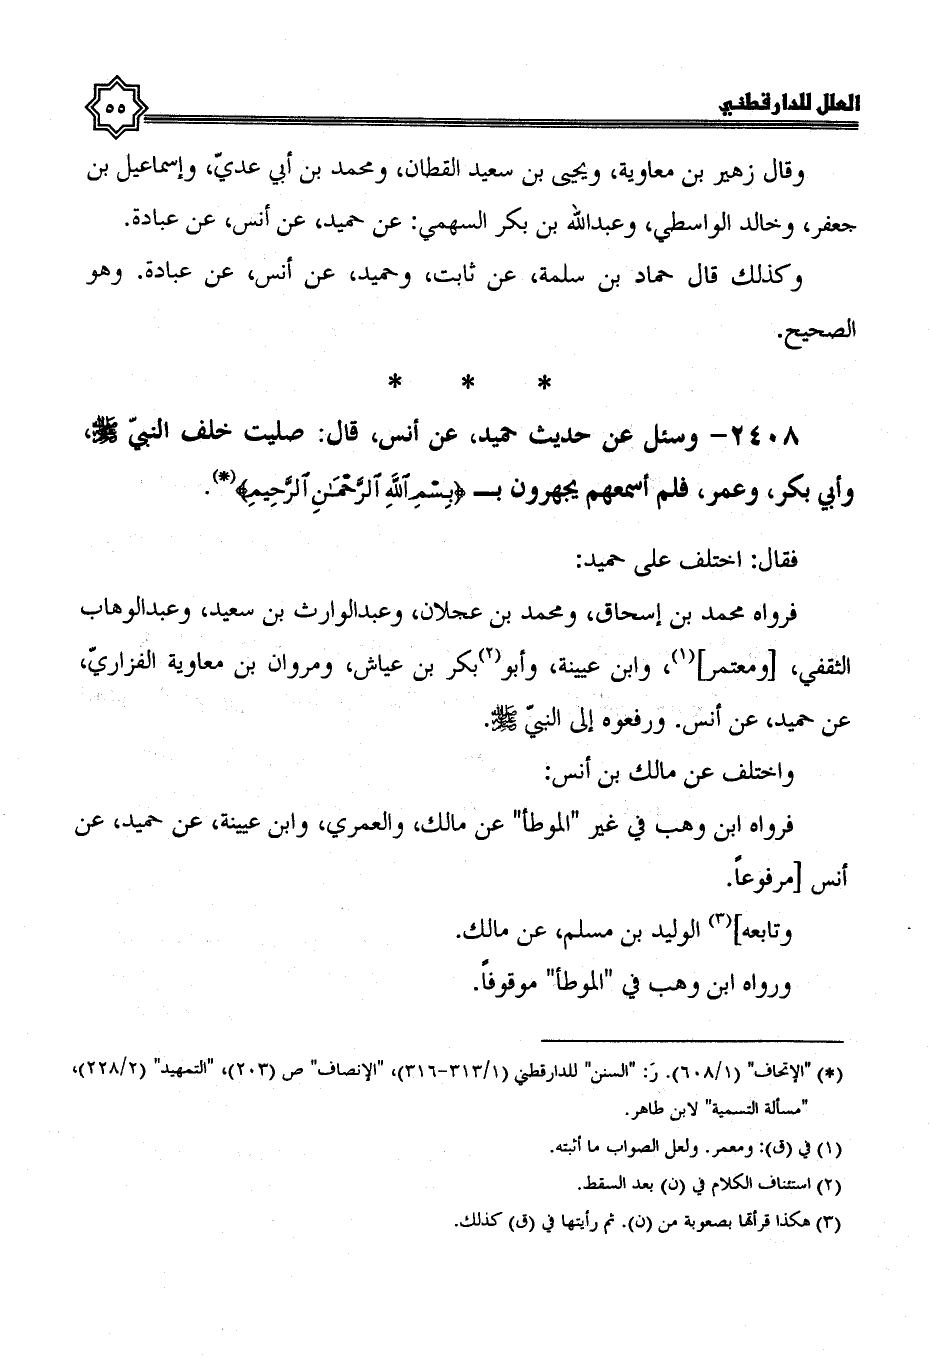 العلل للدارقطني
٥٥
وقال زهير بن معاوية، ويحيى بن سعيد القطان، ومحمد بن أبي عديّ، وإسماعيل بن
جعفر، وخالد الواسطي، وعبدالله بن بكر السهمي: عن حميد، عن أنس، عن عبادة.
وكذلك قال حماد بن سلمة، عن ثابت، وحميد، عن أنس، عن عبادة. وهو
الصحيح.
* * *
٢٤٠٨- وسئل عن حديث حميد، عن أنس، قال: صليت خلف النبيّ ﷺ،
وأبي بكر، وعمر، فلم أسمعهم يجهرون بـ ﴿بِسْمِ ٱللَّهِ ٱلرَّحْمَٰنِ ٱلرَّحِيمِ﴾(*).
فقال: اختلف على حميد:
فرواه محمد بن إسحاق، ومحمد بن عجلان، وعبدالوارث بن سعيد، وعبدالوهاب
الثقفي، [ومعتمر](١)، وابن عيينة، وأبو(٢)بكر بن عياش، ومروان بن معاوية الفزاريّ،
عن حميد، عن أنس. ورفعوه إلى النبيّ ﷺ.
واختلف عن مالك بن أنس:
فرواه ابن وهب في غير "الموطأ" عن مالك، والعمري، وابن عيينة، عن حميد، عن
أنس [مرفوعاً.
وتابعه](٣) الوليد بن مسلم، عن مالك.
ورواه ابن وهب في "الموطأ" موقوفاً.
(*) "الإتحاف" (٦٠٨/١). رَ: "السنن" للدارقطني (٣١٣/١-٣١٦)، "الإنصاف" ص (٢٠٣)، "التمهيد" (٢٢٨/٢)،
"مسألة التسمية" لابن طاهر.
(١) في (ق): ومعمر. ولعل الصواب ما أثبته.
(٢) استئناف الكلام في (ن) بعد السقط.
(٣) هكذا قرأتها بصعوبة من (ن). ثم رأيتها في (ق) كذلك.